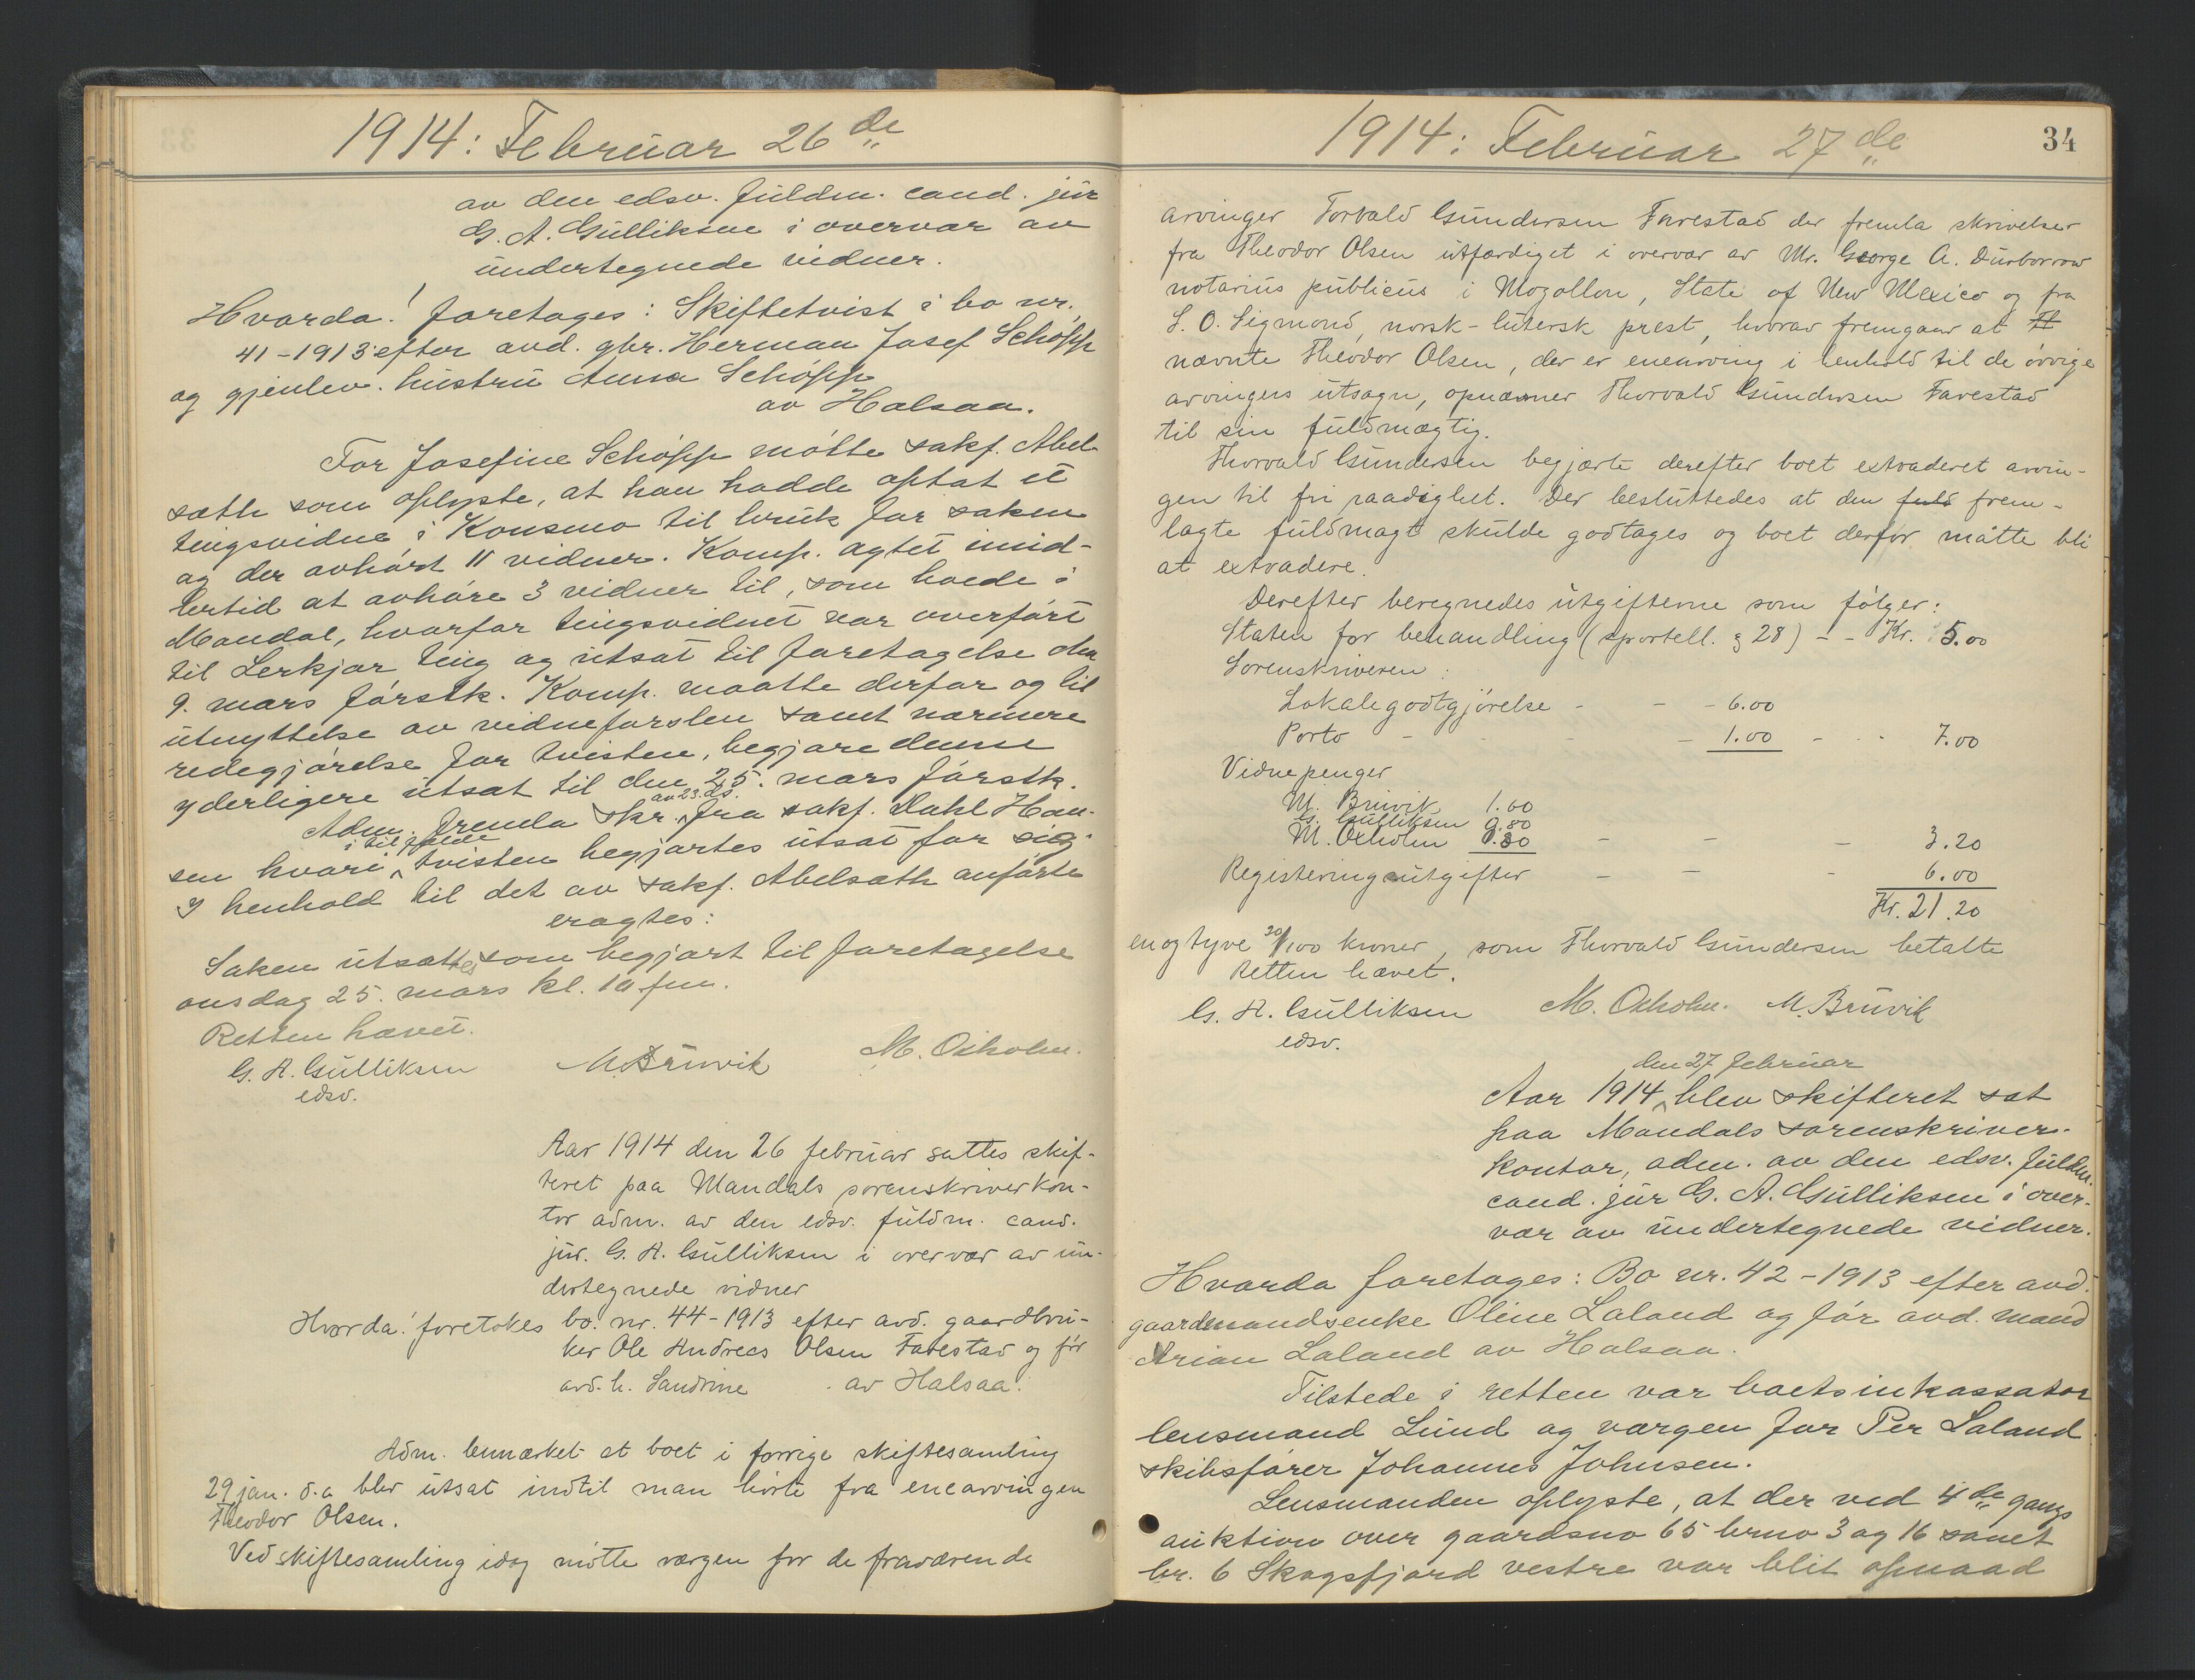 1914: Februar 26de
av den edsv. fuldm. cand. jur
G. A. Gulliksen i overvær av
undertegnede vidner.
Hvorda! foretages: Skiftetvist i bo nr.
41-1913 efter avd. gbr. Herman Josef Schöpp
og gjenlev. hustru Anna Schöpp
av Halsaa.
For Josefine Schöpp møtte sakf. Abel-
sæth som oplyste, at han hadde optat et
tingsvidne i Konsmo til bruk for saken
og der avhørt 11 vidner. Komp. agtet imid-
lertid at avhøre 3 vidner til, som boede i
Mandal, hvorfor tingsvidnet var overført
til Lerkjær ting og utsat til foretagelse den
9. mars førstk. Komp. maatte derfor og til
utnyttelse av vidneførslen samt nærmere
redegjørelse for tvisten, begjære denne
yderligere utsat til den 25. mars førstk.
Adm. fremla skr. av 23. ds. fra sakf. Dahl Han-
sen hvori i tilfælde tvisten begjærtes utsat for sig.
I henhold til det av sakf. Abelsæth anførte
eragtes:
Saken utsættes som begjært til foretagelse
onsdag 25. mars kl. 10 fm.
Retten hævet.
G. A. Gulliksen M. Bruvik M. Oxholm.
edsv.
Aar 1914 den 26 februar sattes skif-
teret paa Mandals sorenskriverkon-
tor adm. av den edsv. fuldm. cand.
jur. G. A. Gulliksen i overvær av un-
dertegnede vidner
Hvorda! foretokes bo. nr. 44-1913 efter avd. gaardbru-
ker Ole Andreas Olsen Favestad og før
avd. h. Sandrine av Halsaa.
Adm. bemærket at boet i forrige skiftesamling
29 jan. d.a blev utsat indtil man hørte fra enearvingen
Theodor Olsen.
Ved skiftesamling idag møtte værgen for de fraværende
1914: Februar 27de
34
arvinger Torvald Gundersen Favestad der fremla skrivelser
fra Theodor Olsen utfærdiget i overvær av Mr. George A. Durborrow
notarius publicus i Mogollon, State of New Mexico og fra
S. O. Sigmond, norsk-lutersk prest, hvorav fremgaar at Th
nævnte Theodor Olsen, der er enearving i henhold til de øvrige
arvingers utsagn, opnævner Thorvald Gundersen Favestad
til sin fuldmægtig.
Thorvald Gundersen begjærte derefter boet extraderet arvin-
gen til fri raadighet. Der besluttedes at den fuld frem-
lagte fuldmagt skulde godtages og boet derfor måtte bli
at extradere.
Derefter beregnedes utgifterne som følger:
Staten for behandling (sportell. § 28) - - Kr. 5.00
Sorenskriveren:
Lokalegodtgjørelse - - - 6.00
Porto - - - - 1.00 - - 7.00
Vidnepenger
M. Bruvik 1.60
G. Gulliksen 0.80
M. Oxholm 0.80 - - - 3.20
Registeringsutgifter - - - 6.00
Kr. 21.20
enogtyve 20/100 kroner, som Thorvald Gundersen betalte
Retten hævet.
G. A. Gulliksen M. Oxholm. M. Bruvik
edsv.
den 27 februar
Aar 1914 blev skifteret sat
paa Mandals sorenskriver-
kontor, adm. av den edsv. fuldm.
cand. jur G. A. Gulliksen i over-
vær av undertegnede vidner.
Hvorda foretages: Bo nr. 42-1913 efter avd.
gaardmandsenke Oline Laland og før avd. mand
Arian Laland av Halsaa.
Tilstede i retten var boets inkassator
lensmand Lund og værgen for Per Laland
skibsfører Johannes Johnsen.
Lensmanden oplyste, at der ved 4de gangs
auktion over gaardsno 65 brno 3 og 16 samt
br. 6 Skogsfjord vestre var blit opnaad